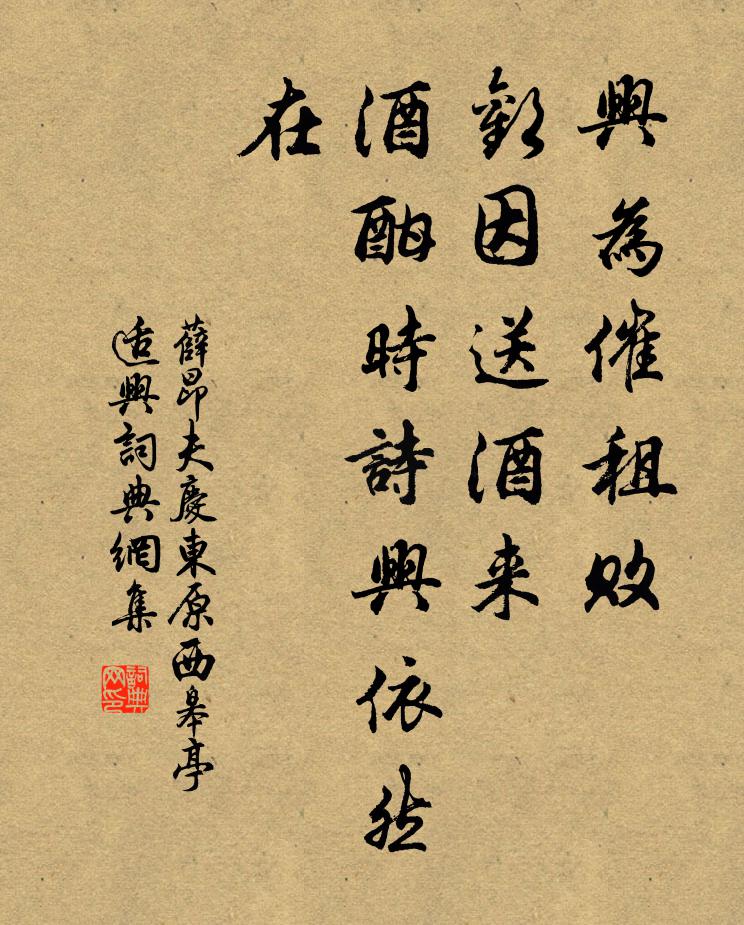 興為催租敗
歡因送酒来
酒酣時詩興依然
在
薛昂夫慶東原西皋亭
适興詞典網集
詞典网印